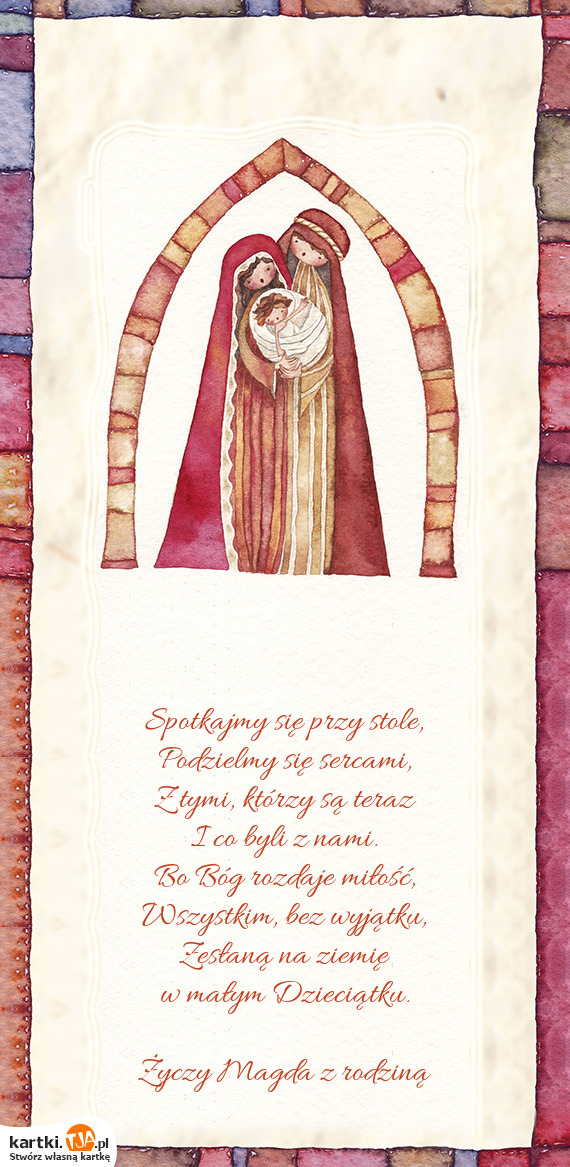 Spotkajmy się przy stole,
Podzielmy się sercami,
Z tymi, którzy są teraz
I co byli z nami.
Bo Bóg rozdaje miłość,
Wszystkim, bez wyjątku,
Zesłaną na ziemię
w małym Dzieciątku.
Życzy Magda z rodziną
kartki.TJA.pl
Stwórz własną kartkę